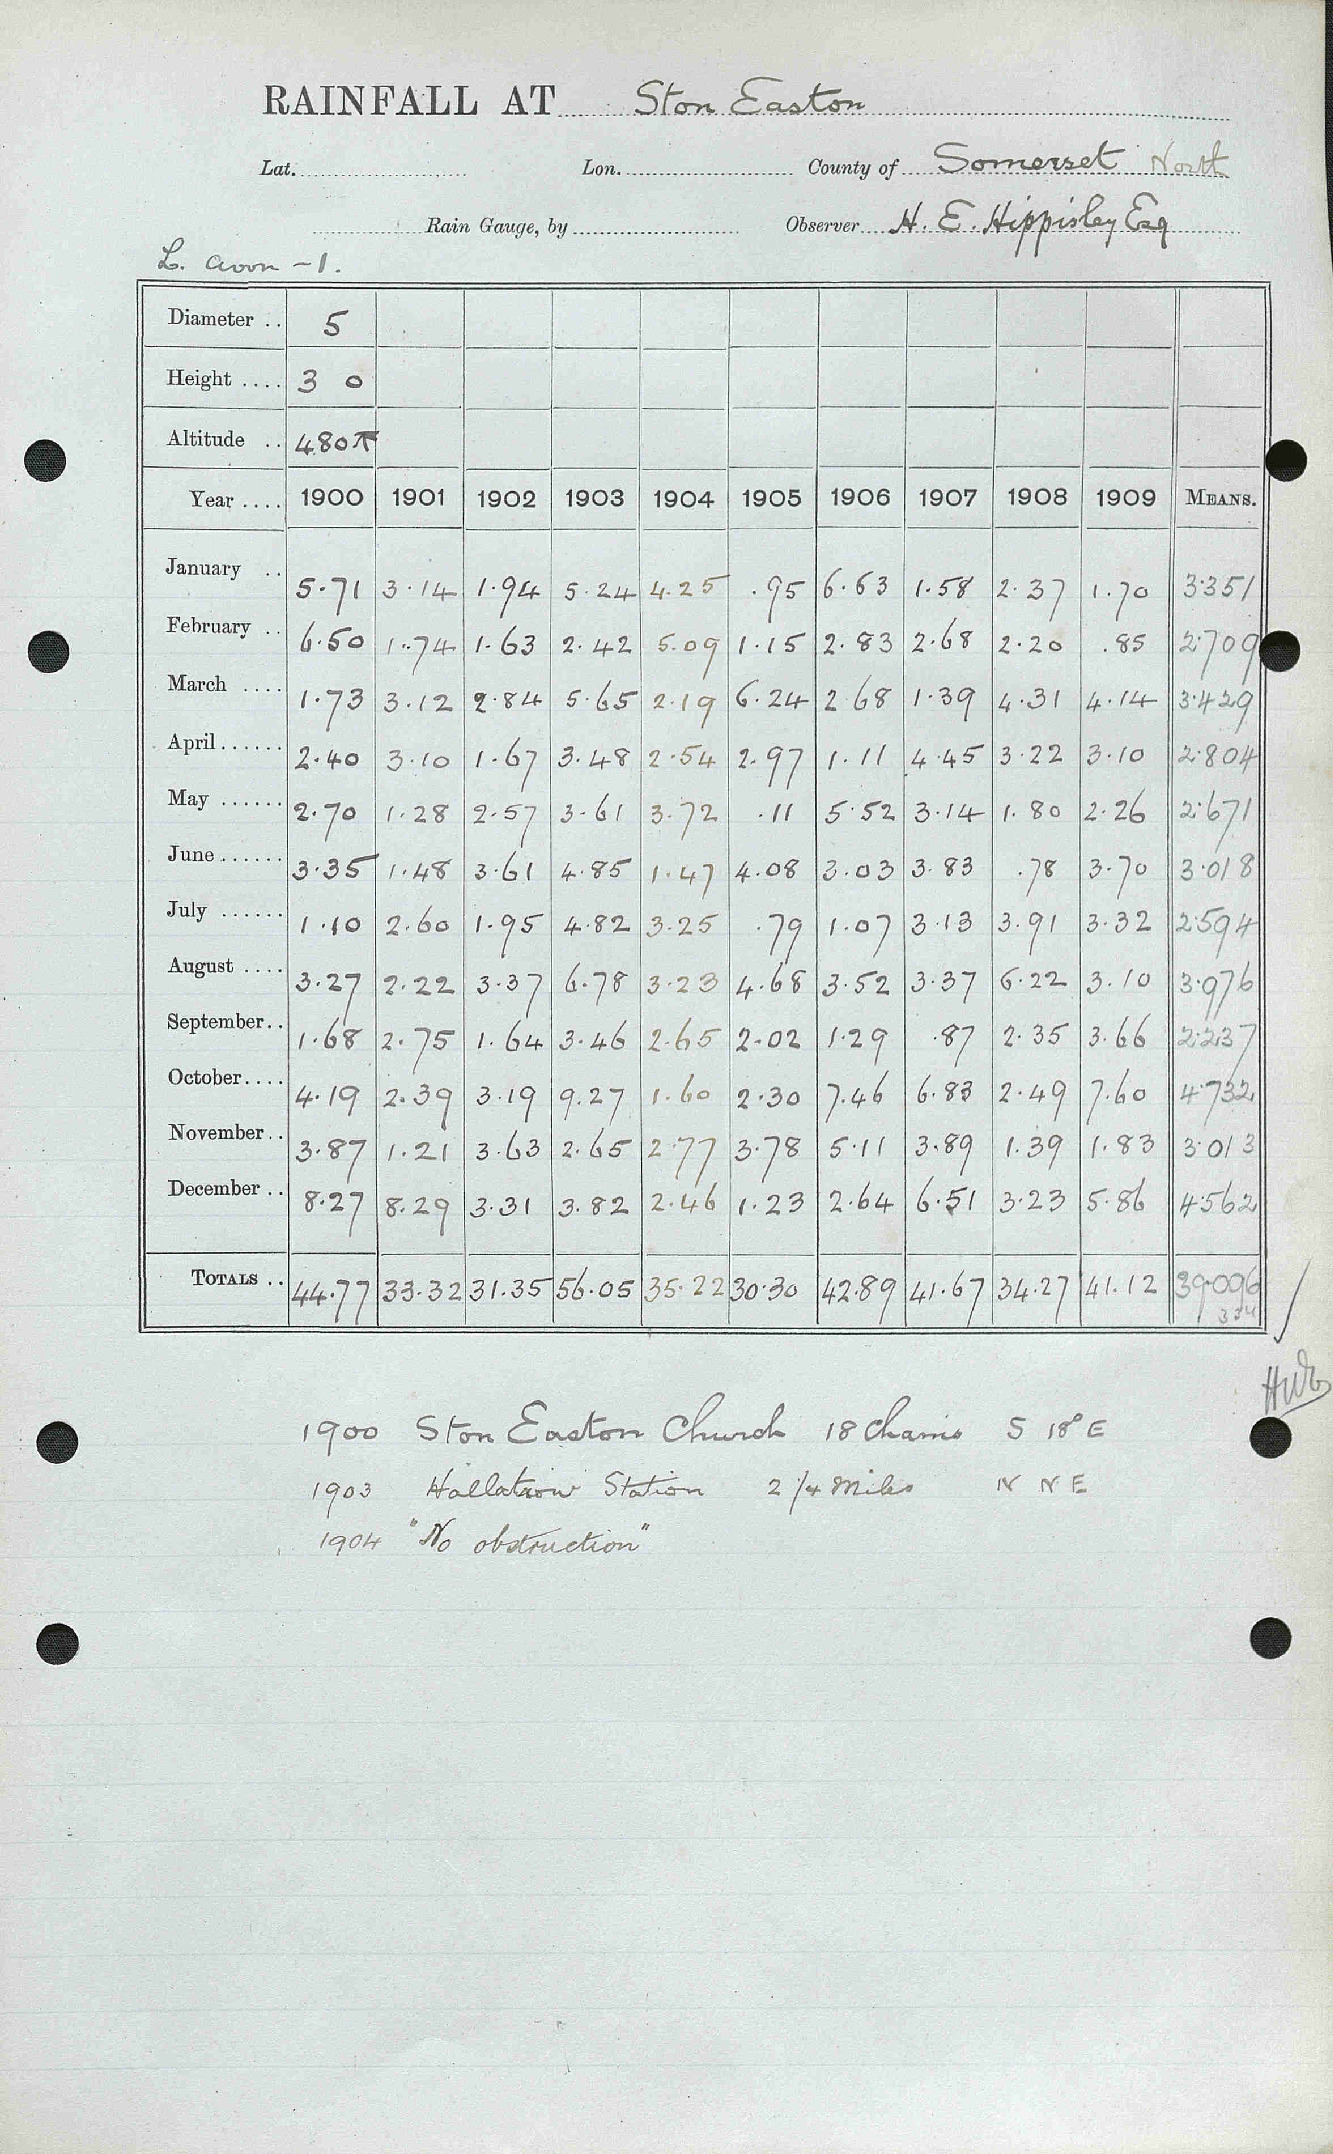 RAINFALL AT Ston Easton
Lat. Lon. County of Somerset North
Rain Gauge, by Observer H. E. Hippisley Esq
L. Avon - 1.
Diameter .. 5
Height .... 3 0
Altitude .. 480
Year .... 1900 1901 1902 1903 1904 1905 1906 1907 1908 1909 MEANS.
January .. 5.71 3.14 1.94 5.24 4.25 .95 6.63 1.58 2.37 1.70 3.351
February .. 6.50 1.74 1.63 2.42 5.09 1.15 2.83 2.68 2.20 .85 2.709
March .... 1.73 3.12 2.84 5.65 2.19 6.24 2.68 1.39 4.31 4.14 3.429
April ...... 2.40 3.10 1.67 3.48 2.54 2.97 1.11 4.45 3.22 3.10 2.804
May ...... 2.70 1.28 2.57 3.61 3.72 .11 5.52 3.14 1.80 2.26 2.671
June ...... 3.35 1.48 3.61 4.85 1.47 4.08 3.03 3.83 .78 3.70 3.018
July ...... 1.10 2.60 1.95 4.82 3.25 .79 1.07 3.13 3.91 3.32 2.594
August .... 3.27 2.22 3.37 6.78 3.23 4.68 3.52 3.37 6.22 3.10 3.976
September.. 1.68 2.75 1.64 3.46 2.65 2.02 1.29 .87 2.35 3.66 2.237
October.... 4.19 2.39 3.19 9.27 1.60 2.30 7.46 6.83 2.49 7.60 4.732
November.. 3.87 1.21 3.63 2.65 2.77 3.78 5.11 3.89 1.39 1.83 3.013
December .. 8.27 8.29 3.31 3.82 2.46 1.23 2.64 6.51 3.23 5.86 4.562
TOTALS .. 44.77 33.32 31.35 56.05 35.22 30.30 42.89 41.67 34.27 41.12 39.096
1900 Ston Easton Church 18 Chains S 18° E
1903 Hallatrow Station 2 1/4 Miles N N E
1904 "No obstruction"